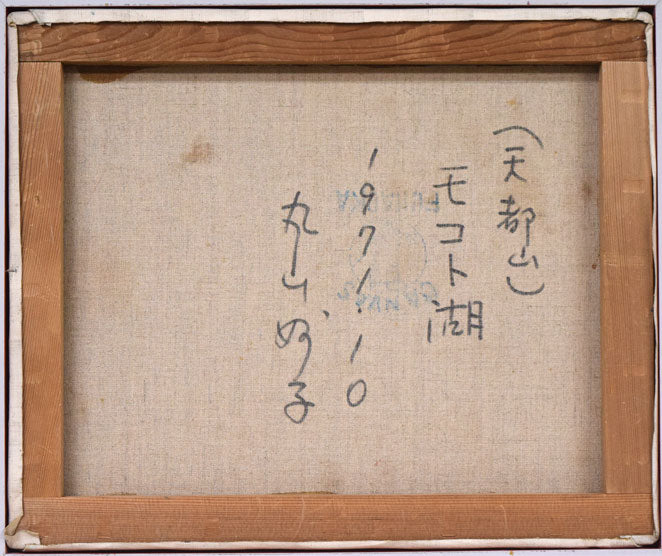 (天都山)
モコト湖
1971.10
丸山妙子